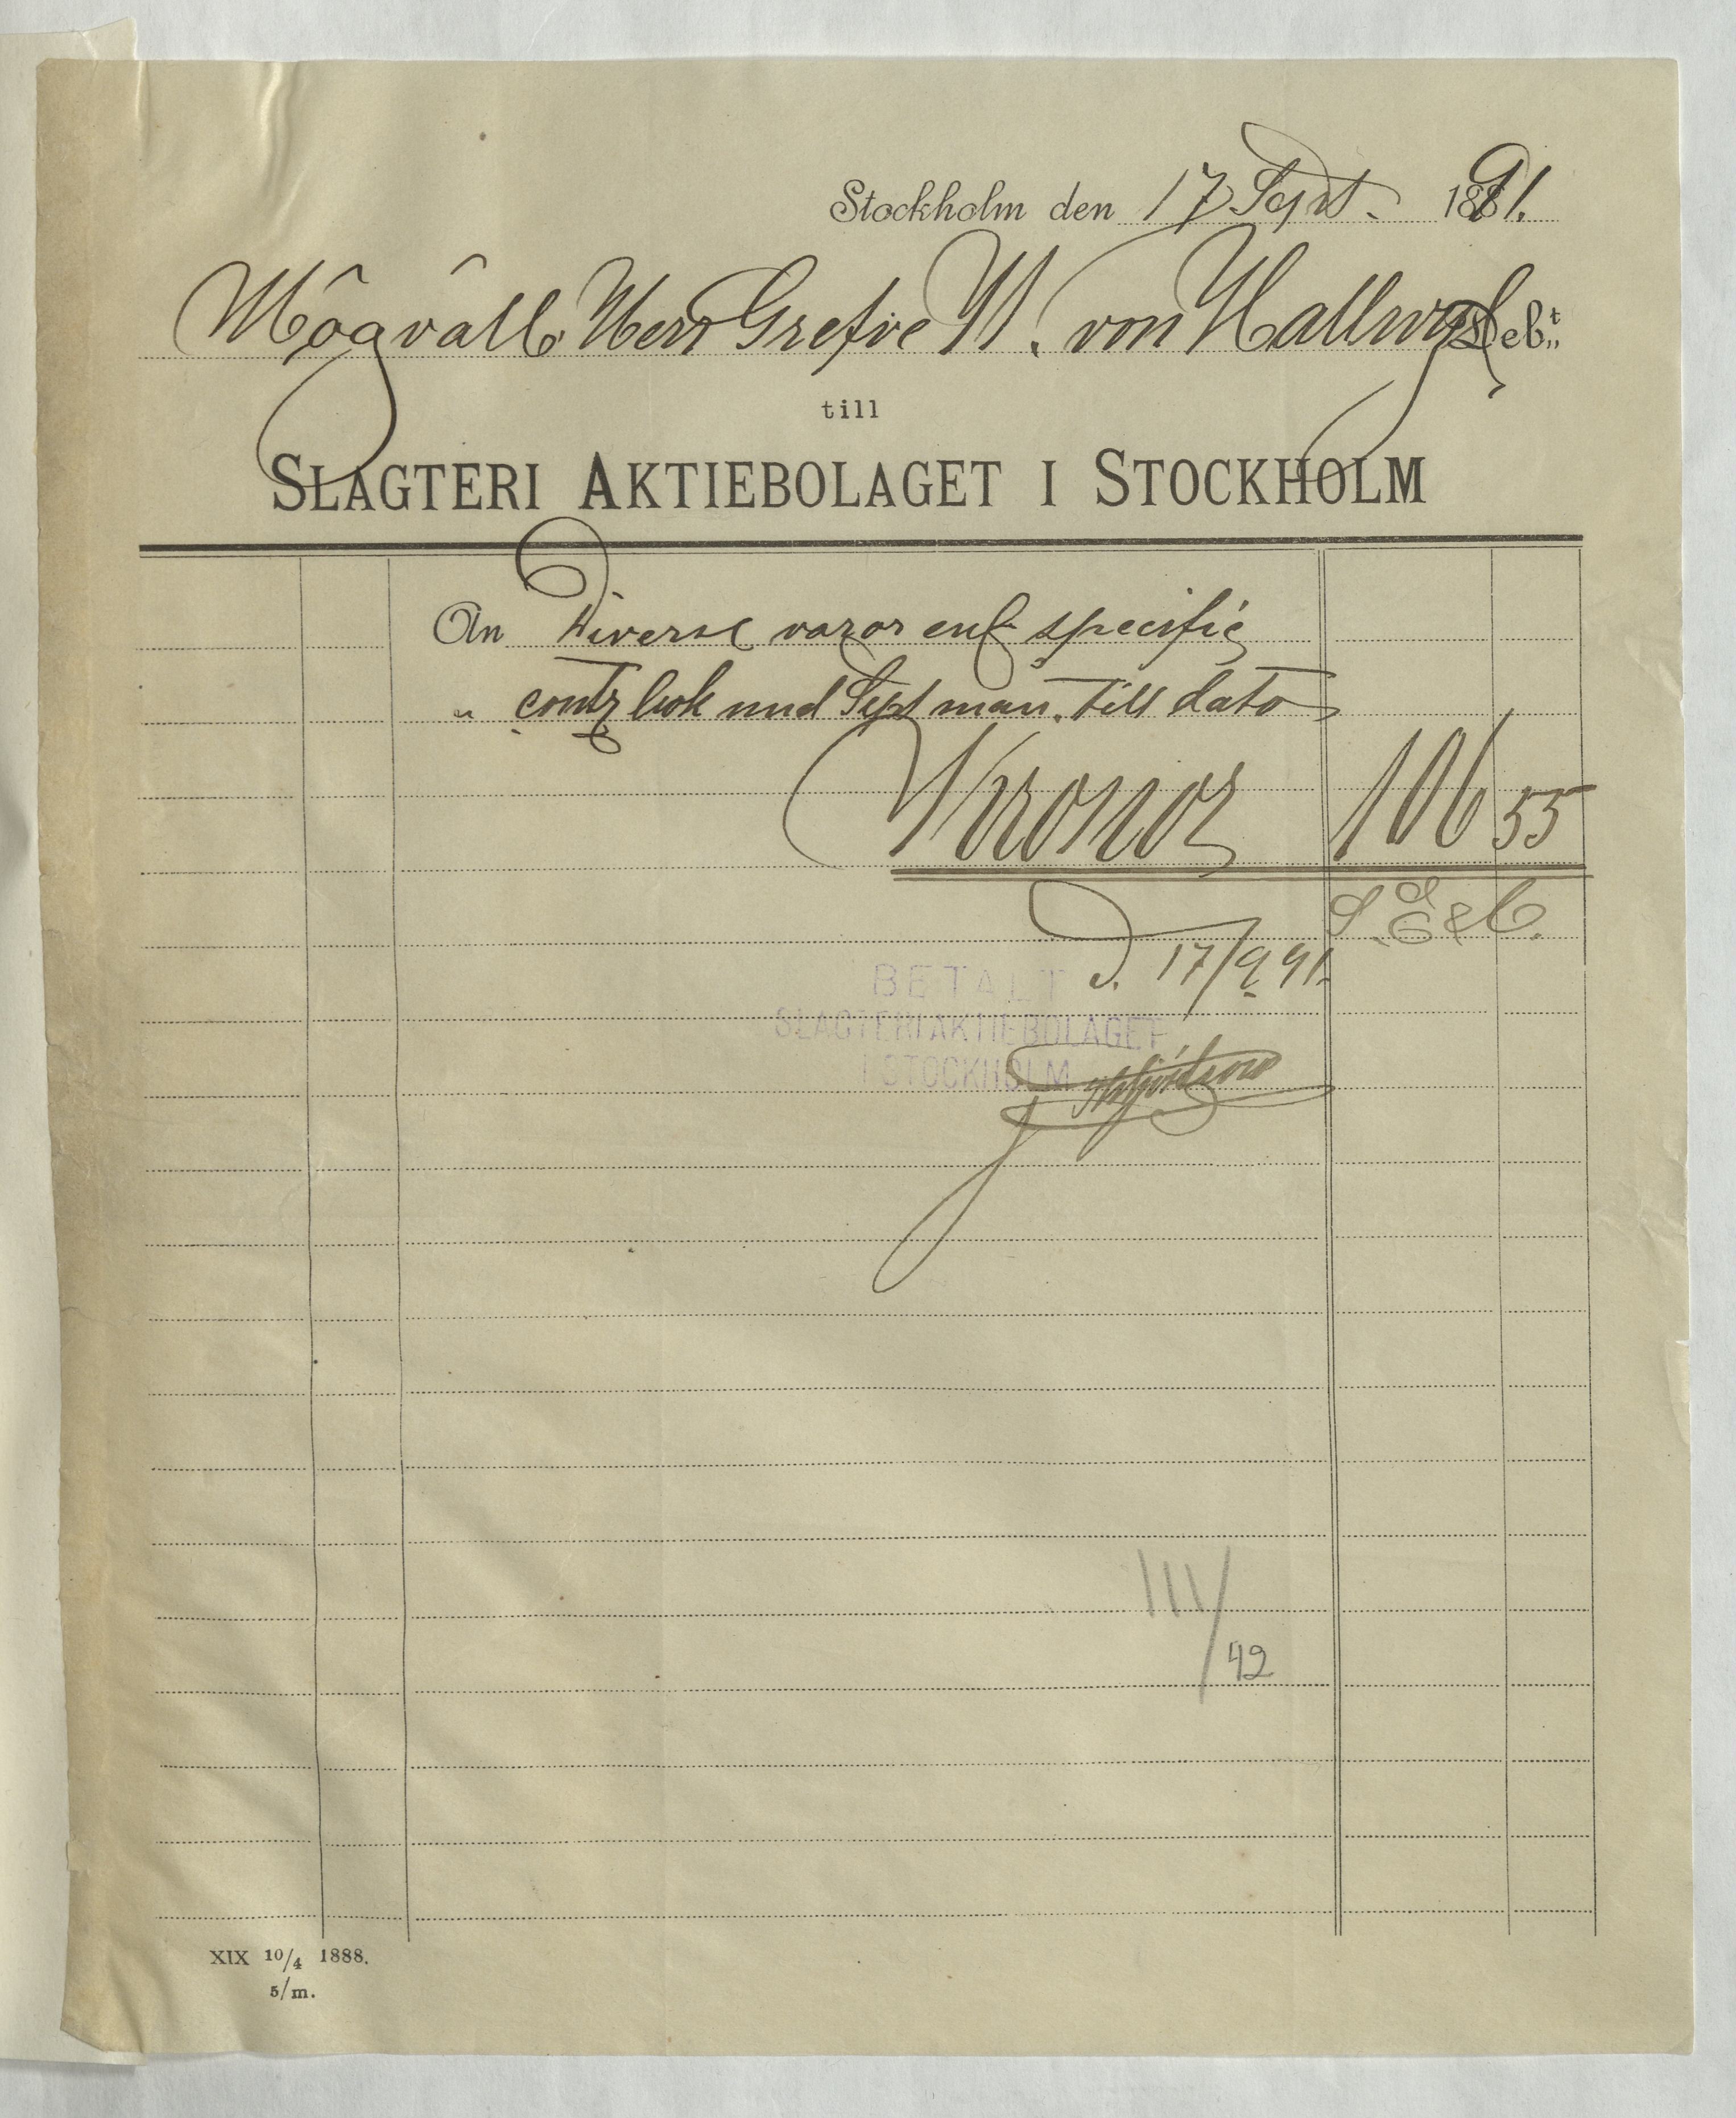 Stockholm den 17 Sept. 1891.
Högvälb. Herr Grefve W. von Hallwyl Deb:t
till
SLAGTERI AKTIEBOLAGET I STOCKHOLM
An Diverse varor enl. specific
" contr bok und Sept mån. till dato
Kronor 106 55
d. 17/9 91.
BETALT
SLAGTERIAKTIEBOLAGET
I STOCKHOLM
III/42
XIX 10/4 1888.
5/m.